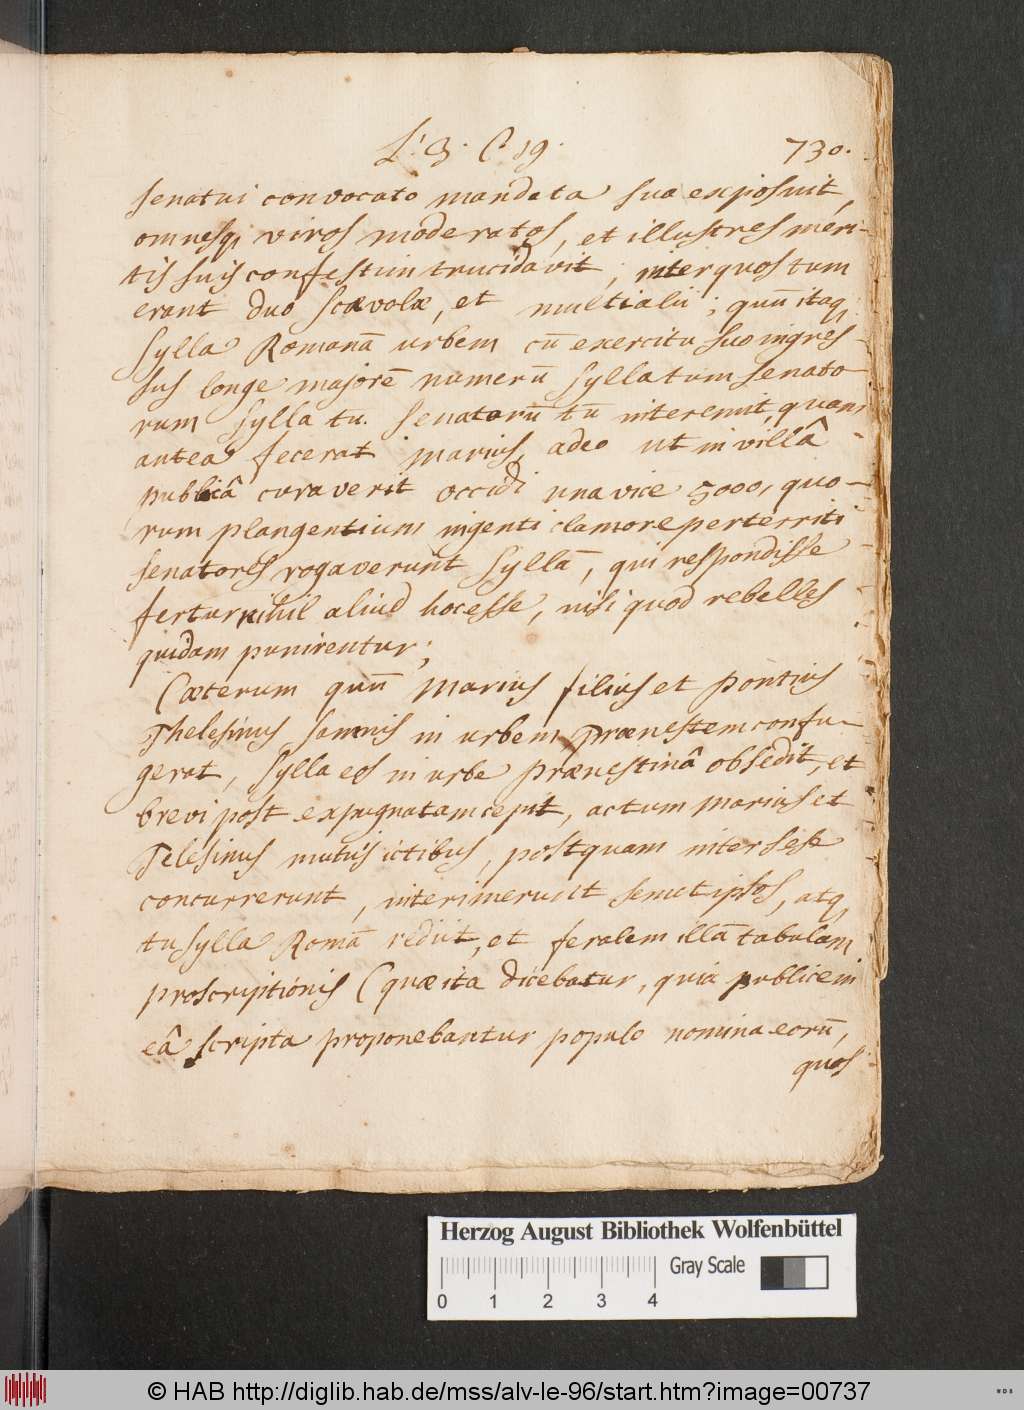 L. 3. C. 19.
730.
senatui convocato mandata sua exposuit,
omnesq, viros moderatos, et illustres meri-
tis suis confestim trucidavit, inter quos tum
erant duo Scævolæ, et multi alii; quū itaq,
Sylla Romanā urbem cū exercitu suo ingres-
sus longe majorē numerū Syllatum senato-
rum Sylla tu. Senatorū tū interemit, quam
antea fecerat Marius, adeo ut in villâ
publicâ curaverit occidi una vice 5000, quo-
rum plangentium ingenti clamore perterriti
senatores rogaverunt Syllā, qui respondisse
fertur nihil aliud hoc esse, nisi quod rebelles
quidam punirentur;
Cæterum quū Marius filius et Pontius
Thelesinus Samnis in urbem Prænestem confu-
gerat, Sylla eos in urbe Prænestinâ obsedit, et
brevi post expugnatam cepit, actum Marius et
Telesinus mutuis ictibus, postquam inter sese
concurrerunt, interimerunt semet ipsos, atq,
tu Sylla Romā rediit, et feralem illā tabulam
proscriptionis (quæ ita dicebatur, quia publice in
eâ scripta proponebantur populo nomina eorū,
quos
Herzog August Bibliothek Wolfenbüttel
Gray Scale
0 1 2 3 4
© HAB http://diglib.hab.de/mss/alv-le-96/start.htm?image=00737